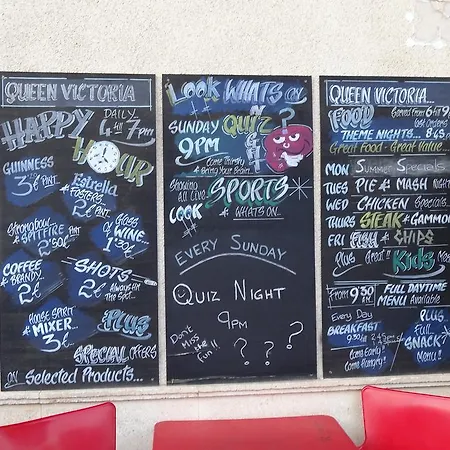 QUEEN VICTORIA
HAPPY
DAILY
4 till 7pm
HOUR
GUINNESS
3€ PINT
Estrella
& FOSTERS
2€ PINT
Strongbow &
SPITFIRE PINT
2'50€
Glass
of
WINE
1'30€
COFFEE
& BRANDY
2€
SHOTS
2€ Always On
The Spot...
House Spirit
& MIXER...
3€
PLUS
SPECIAL OFFERS
ON Selected Products...
LOOK WHATS ON
SUNDAY QUIZ
9PM
NIGHT
?
Come Thirsty
& Bring Your Brain
Showing
All Live
SPORTS
LOOK
& WHATS ON...
EVERY SUNDAY
QUIZ NIGHT
9PM
Don't
Miss
the
Fun!!
? ? ?
QUEEN VICTORIA...
FOOD
Served From
THEME NIGHTS...
Great Food - Great Value...
MON Summer Specials
TUES PIE & MASH NIGHT
WED CHICKEN Specials
THURS STEAK & GAMMON
FRI FISH & CHIPS
PLUS Great!! Kids
From 9'30 FULL DAYTIME
MENU Available
Every Day
BREAKFAST
Come Early!
Come Hungry!
PLUS
Full
SNACK
Menu!!